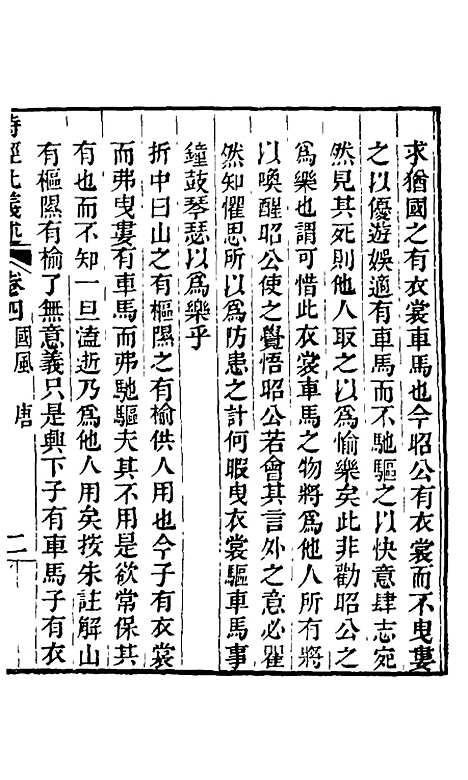 求猶國之有衣裳車馬也今昭公有衣裳而不曳婁
之以優遊娛適有車馬而不馳驅之以快意肆志宛
然見其死則他人取之以爲愉樂矣此非勸昭公之
爲樂也謂可惜此衣裳車馬之物將爲他人所有將
以喚醒昭公使之覺悟昭公若會其言外之意必瞿
然知懼思所以爲防患之計何暇曳衣裳驅車馬事
鐘鼓琴瑟以爲樂乎
折中曰山之有樞隰之有榆供人用也今子有衣裳
而弗曳婁有車馬而弗馳驅夫其不用是欲常保其
有也而不知一旦溘逝乃爲他人用矣按朱註解山
有樞隰有榆了無意義只是興下子有車馬子有衣
詩經比義述 卷四 國風 唐 二